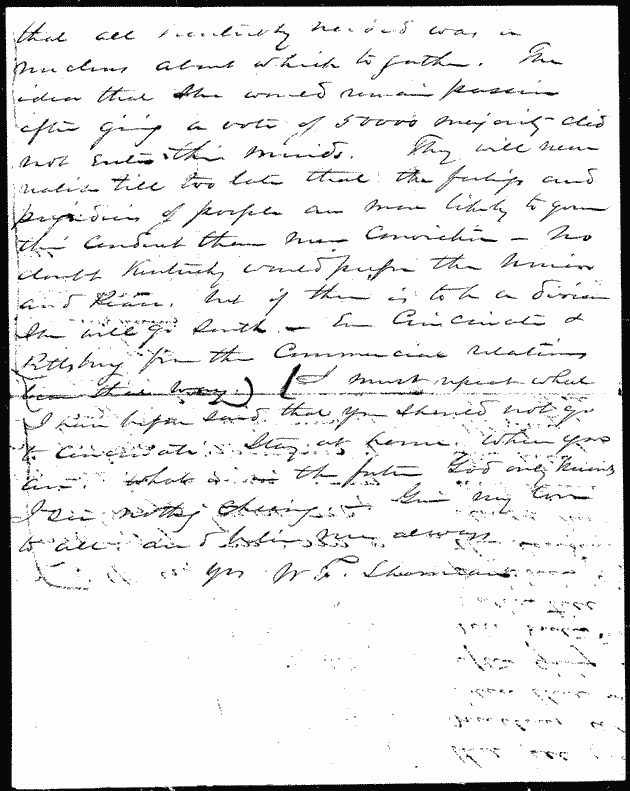 that all Kentucky needed was a
nucleus about which to gather. The
idea that she would remain passive
after giving a vote of 50000 majority did
not enter their minds. They will never
realize till too late that the feelings and
prejudices of people are more likely to govern
their conduct than mere conviction - no
doubt Kentucky would prefer the Union
and Peace. but if there is to be a division
She will go South - Even Cincinnati &
Pittsburg from the Commercial relations
lean that way.) (I must repeat what
I have before said that you should not go
to Cincinnati. Stay at home. When you
are. What is in the future God only knows
I see nothing cheering - Give my love
to all. and believe me always
Yrs W T. Sherman